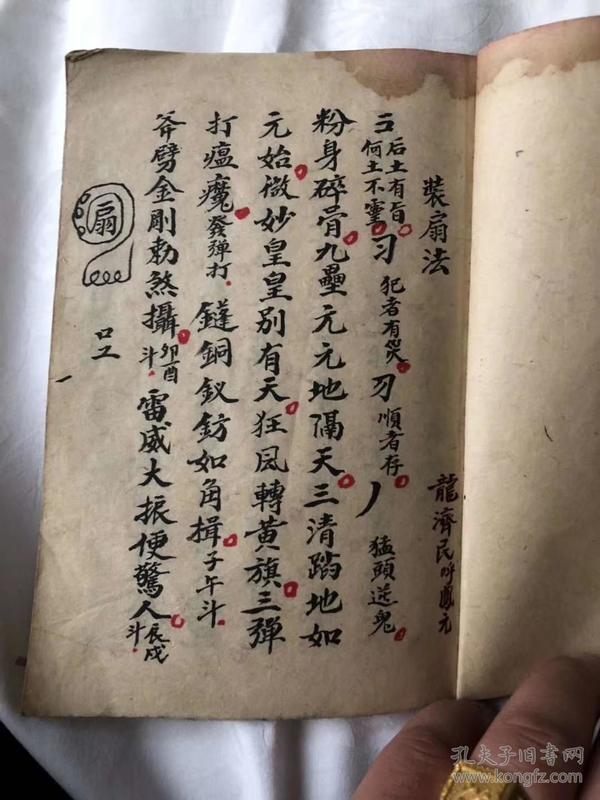 裝扇法
龍濟民 鳳元
后土有旨 何土不靈 犯者有災 刃 順者存 丿 猛頭送鬼
粉身碎骨九壘元元地隔天三清蹈地如
元始微妙皇皇別有天狂風轉黃旗三彈
打瘟魔發彈打 鎚銅釵鈁如角揖子午斗
斧劈金剛勑煞攝卯酉斗雷威大振便驚人辰戌斗
扇
孔夫子旧书网
www.kongfz.com